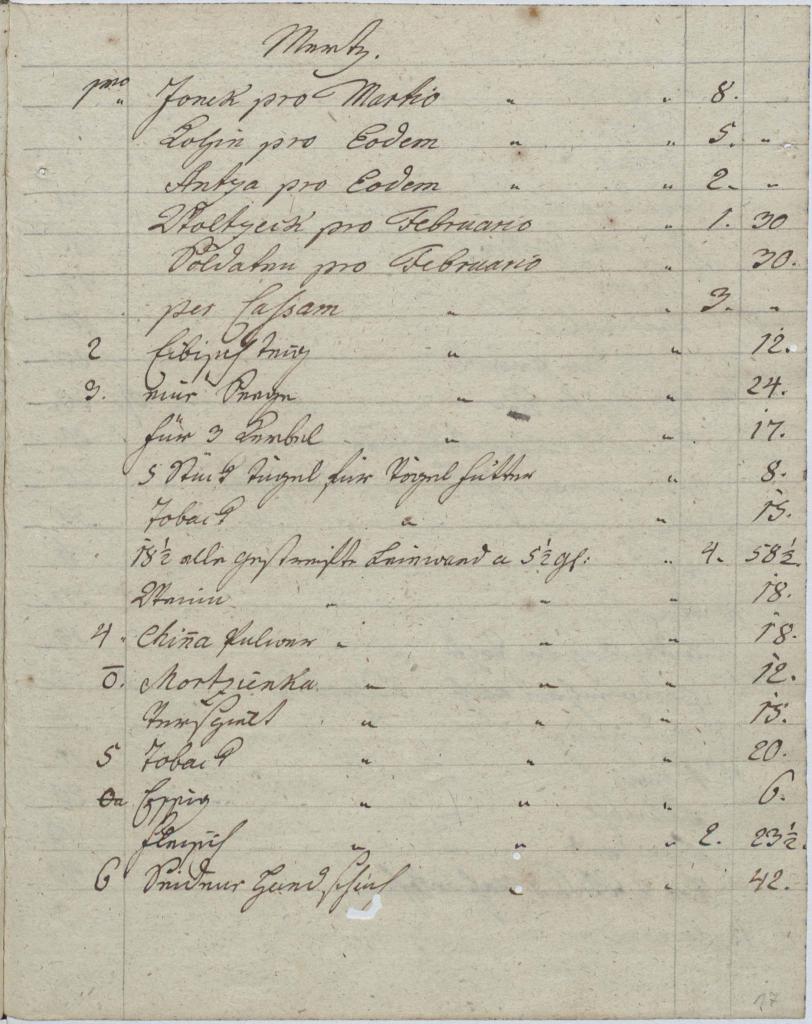 Mertz.
pmo Jonek pro Martio " " 8.
Kosin pro Eodem " " 5. "
Antza pro Eodem " " 2. "
Woltzeck pro Februario " 1. 30
Soldaten pro Februario " 30.
per Cassam " " 3. "
2 Eibisch teig " " 12.
3. " " 24.
für 3 Kerbel " " 17.
5 Stück tügel für Vögel futter " 8.
Toback " " 15.
18½ elle gestreifte Leinwand a 5½ gl: " 4. 58½
" " " 18.
4. China Pulver " " " 18.
0. Mortzienka " " " 12.
Verspielt " " " 15.
5 Toback " " " 20.
Essig " " " 6.
fleisch " " " 2. 23½.
6 Seidene Handschuh " " 42.
17